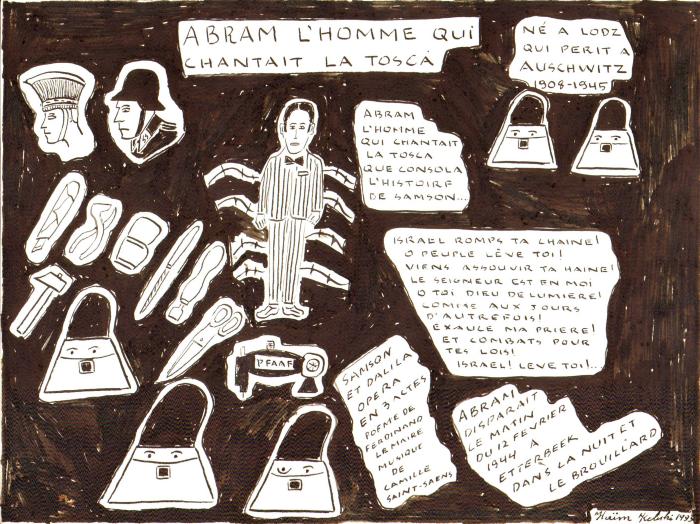 ABRAM L'HOMME QUI
CHANTAIT LA TOSCA
NÉ A LODZ
QUI PERIT A
AUSCHWITZ
1908-1945
ABRAM
L'HOMME
QUI CHANTAIT
LA TOSCA
QUE CONSOLA
L'HISTOIRE
DE SAMSON...
ISRAEL ROMPS TA CHAINE!
O PEUPLE LÈVE TOI!
VIENS ASSOUVIR TA HAINE!
LE SEIGNEUR EST EN MOI
O TOI DIEU DE LUMIERE!
COMME AUX JOURS
D'AUTREFOIS!
EXAUCE MA PRIERE!
ET COMBATS POUR
TES LOIS!
ISRAEL! LEVE TOI!...
PFAAF
SAMSON
ET DALILA
OPERA
EN 3 ACTES
POEME DE
FERDINAND
LEMAIRE
MUSIQUE
DE
CAMILLE
SAINT-SAENS
ABRAM
DISPARAIT
LE MATIN
DU 12 FEVRIER
1944 A
ETTERBEEK
DANS LA NUIT ET
LE BROUILLARD
Haïm